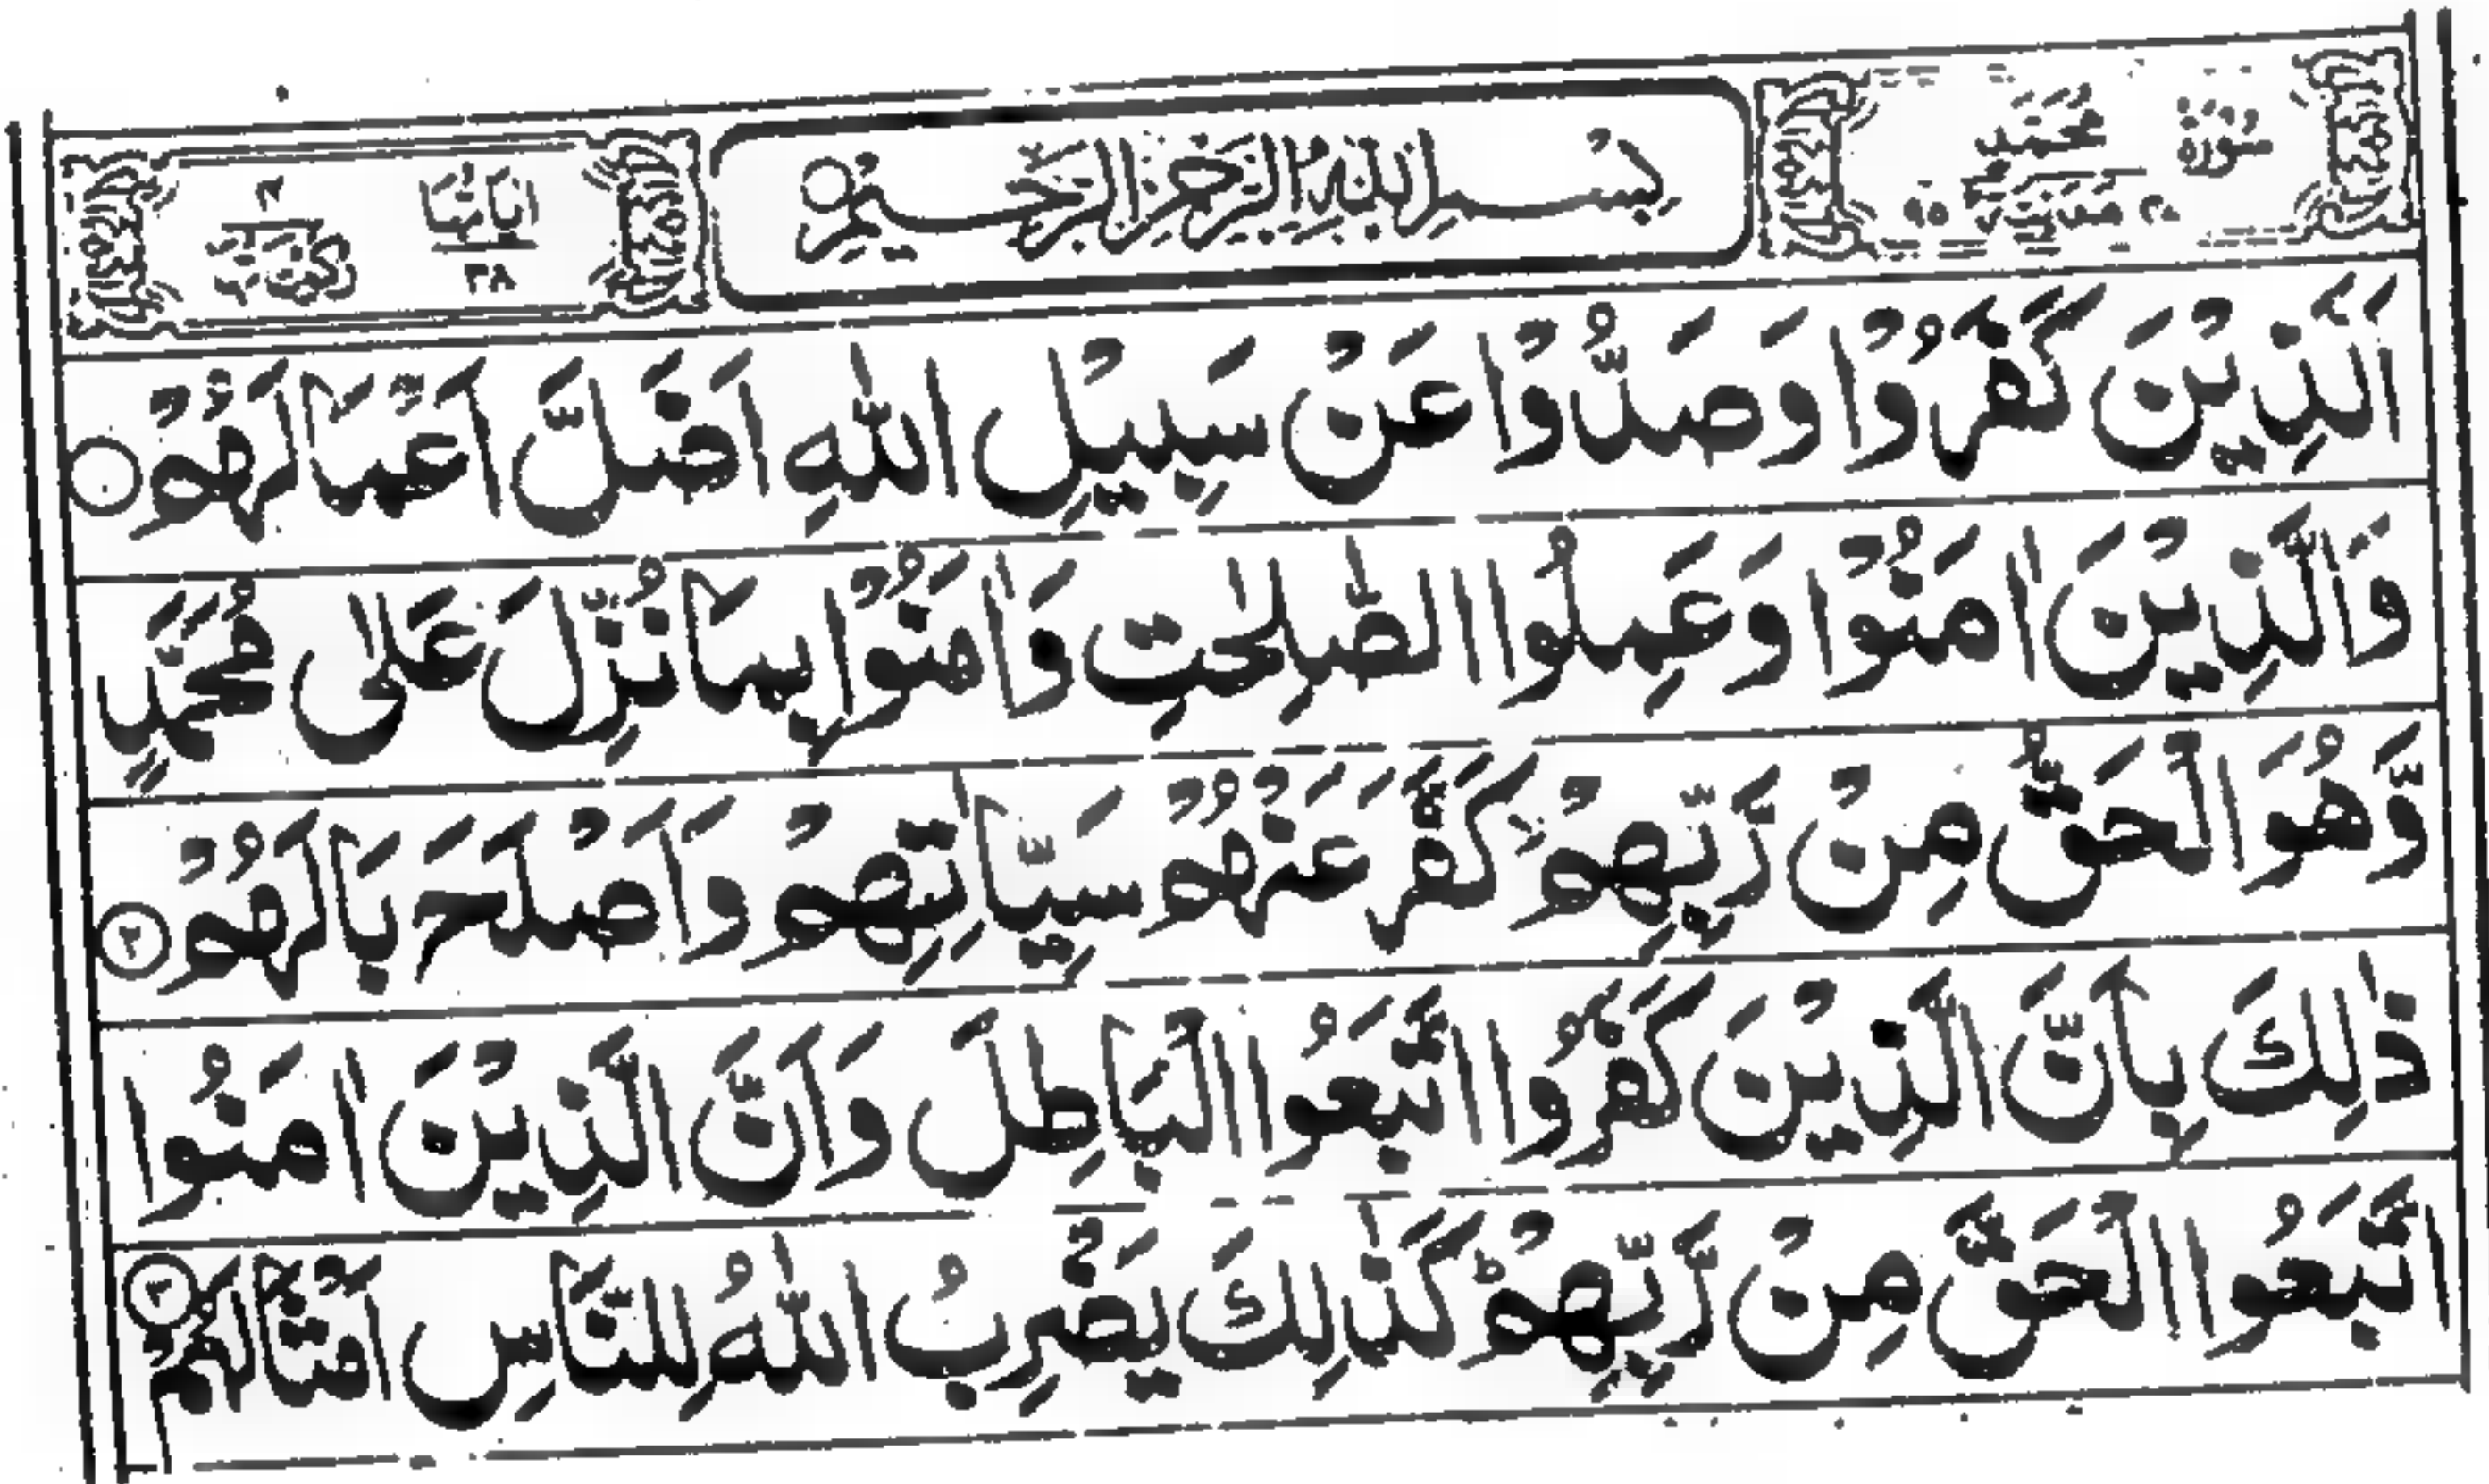 سُوْرَةُ مُحَمَّدٍ مَدَنِيَّةٌ ٩٥
بِسْمِ اللّٰهِ الرَّحْمٰنِ الرَّحِيْمِ
اٰيَاتُهَا ٣٨
اَلَّذِيْنَ كَفَرُوْا وَصَدُّوْا عَنْ سَبِيْلِ اللّٰهِ اَضَلَّ اَعْمَالَهُمْ
وَالَّذِيْنَ اٰمَنُوْا وَعَمِلُوا الصّٰلِحٰتِ وَاٰمَنُوْا بِمَا نُزِّلَ عَلٰى مُحَمَّدٍ
وَّهُوَ الْحَقُّ مِنْ رَّبِّهِمْ ۙ كَفَّرَ عَنْهُمْ سَيِّاٰتِهِمْ وَاَصْلَحَ بَالَهُمْ ٢
ذٰلِكَ بِاَنَّ الَّذِيْنَ كَفَرُوا اتَّبَعُوا الْبَاطِلَ وَاَنَّ الَّذِيْنَ اٰمَنُوا
اتَّبَعُوا الْحَقَّ مِنْ رَّبِّهِمْ ؕ كَذٰلِكَ يَضْرِبُ اللّٰهُ لِلنَّاسِ اَمْثَالَهُمْ ٣